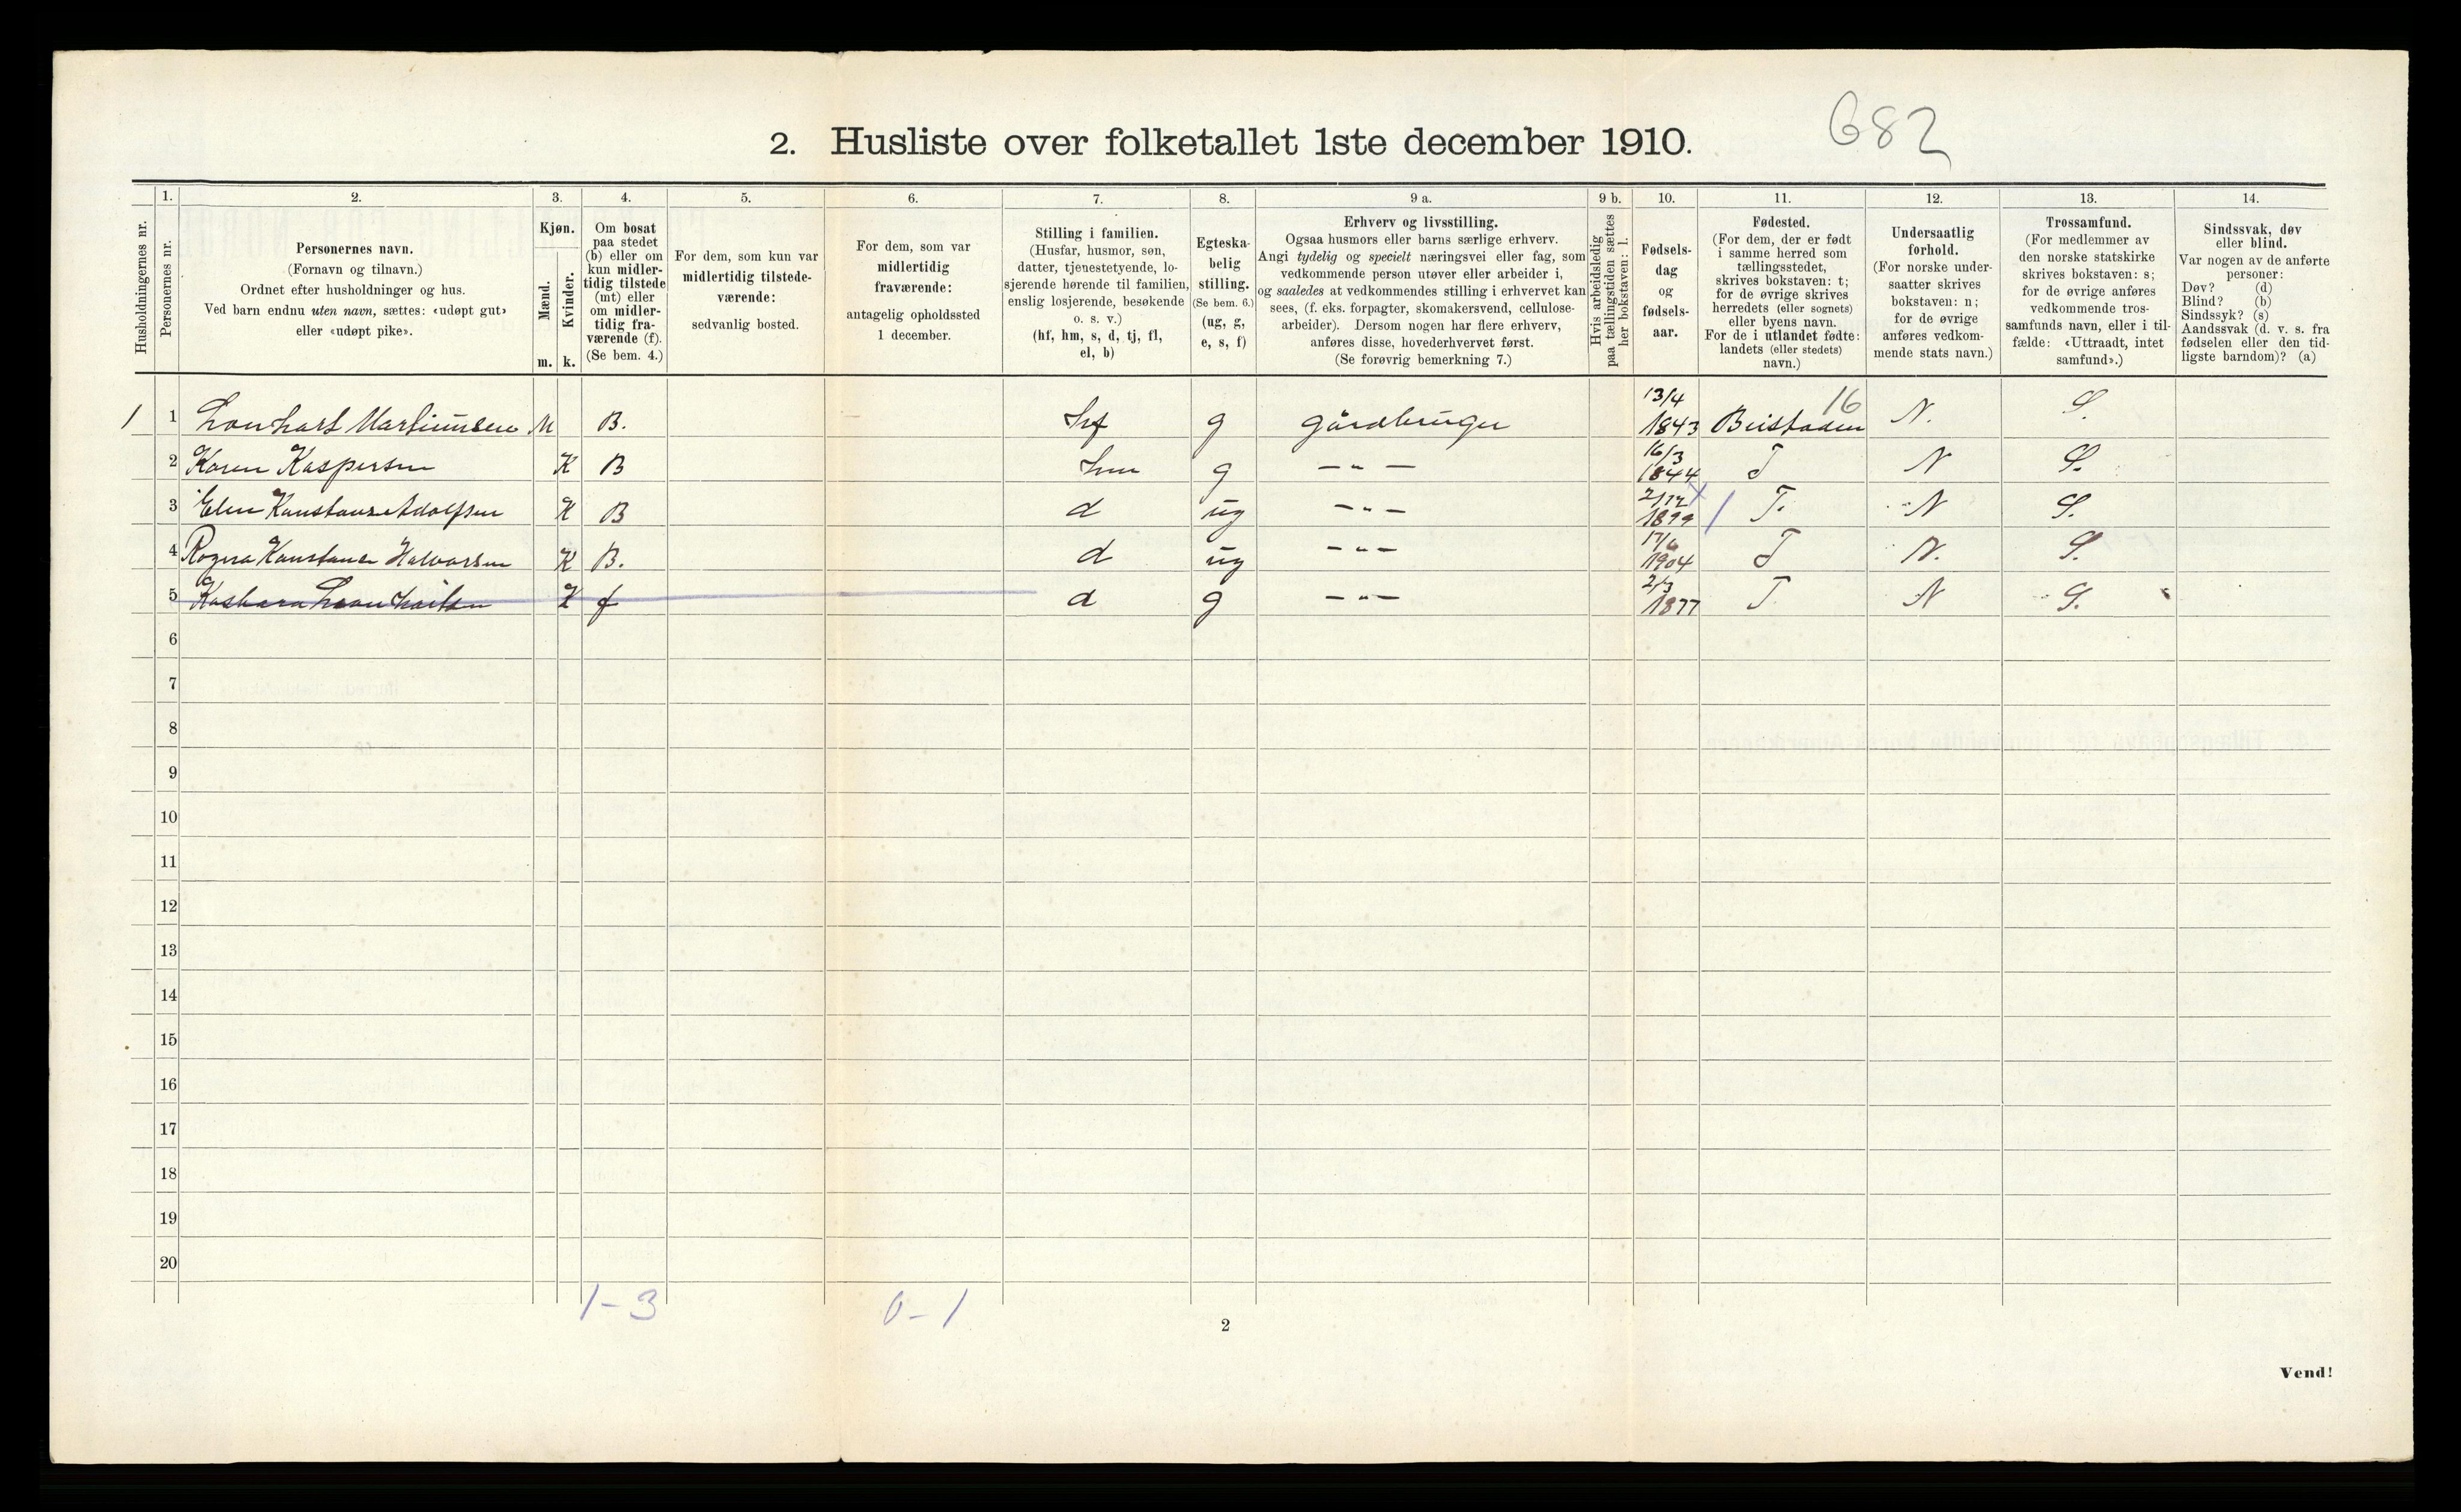 682
2. Husliste over folketallet 1ste december 1910.
Husholdningernes nr.
1. Personernes nr.
2. Personernes navn.
(Fornavn og tilnavn.)
Ordnet efter husholdninger og hus.
Ved barn endnu uten navn, sættes: «udøpt gut»
eller «udøpt pike».
3. Kjøn.
Mænd. m.
Kvinder. k.
4. Om bosat
paa stedet
(b) eller om
kun midler-
tidig tilstede
(mt) eller
om midler-
tidig fra-
værende (f).
(Se bem. 4.)
5. For dem, som kun var
midlertidig tilstede-
værende:
sedvanlig bosted.
6. For dem, som var
midlertidig
fraværende:
antagelig opholdssted
1 december.
7. Stilling i familien.
(Husfar, husmor, søn,
datter, tjenestetyende, lo-
sjerende hørende til familien,
enslig losjerende, besøkende
o. s. v.)
(hf, hm, s, d, tj, fl,
el, b)
8. Egteska-
belig
stilling.
(Se bem. 6.)
(ug, g,
e, s, f)
9 a. Erhverv og livsstilling.
Ogsaa husmors eller barns særlige erhverv.
Angi tydelig og specielt næringsvei eller fag, som
vedkommende person utøver eller arbeider i,
og saaledes at vedkommendes stilling i erhvervet kan
sees, (f. eks. forpagter, skomakersvend, cellulose-
arbeider). Dersom nogen har flere erhverv,
anføres disse, hovederhvervet først.
(Se forøvrig bemerkning 7.)
9 b. Hvis arbeidsledig
paa tællingstiden sættes
her bokstaven: l.
10. Fødsels-
dag
og
fødsels-
aar.
11. Fødested.
(For dem, der er født
i samme herred som
tællingsstedet,
skrives bokstaven: t;
for de øvrige skrives
herredets (eller sognets)
eller byens navn.
For de i utlandet fødte:
landets (eller stedets)
navn.)
12. Undersaatlig
forhold.
(For norske under-
saatter skrives
bokstaven: n;
for de øvrige
anføres vedkom-
mende stats navn.)
13. Trossamfund.
(For medlemmer av
den norske statskirke
skrives bokstaven: s;
for de øvrige anføres
vedkommende tros-
samfunds navn, eller i til-
fælde: «Uttraadt, intet
samfund».)
14. Sindssvak, døv
eller blind.
Var nogen av de anførte
personer:
Døv? (d)
Blind? (b)
Sindssyk? (s)
Aandssvak (d. v. s. fra
fødselen eller den tid-
ligste barndom)? (a)
1 1 Martiunsen M B. hf g gårdbruger 13/4 1843 Beistaden 16 N. S.
2 Karen Kaspersen K B hm g — „ — 16/3 1844 T N S.
3 Elen Kanstanse Adolfsen K B d ug — „ — 2/12 1899 T. N S.
4 Ragna Kanstanse Halvorsen K B. d ug — „ — 1904 T N. S.
5 K f d g — „ — 2/3 1877 T N S.
6
7
8
9
10
11
12
13
14
15
16
17
18
19
20
1-3 0-1
2
Vend!